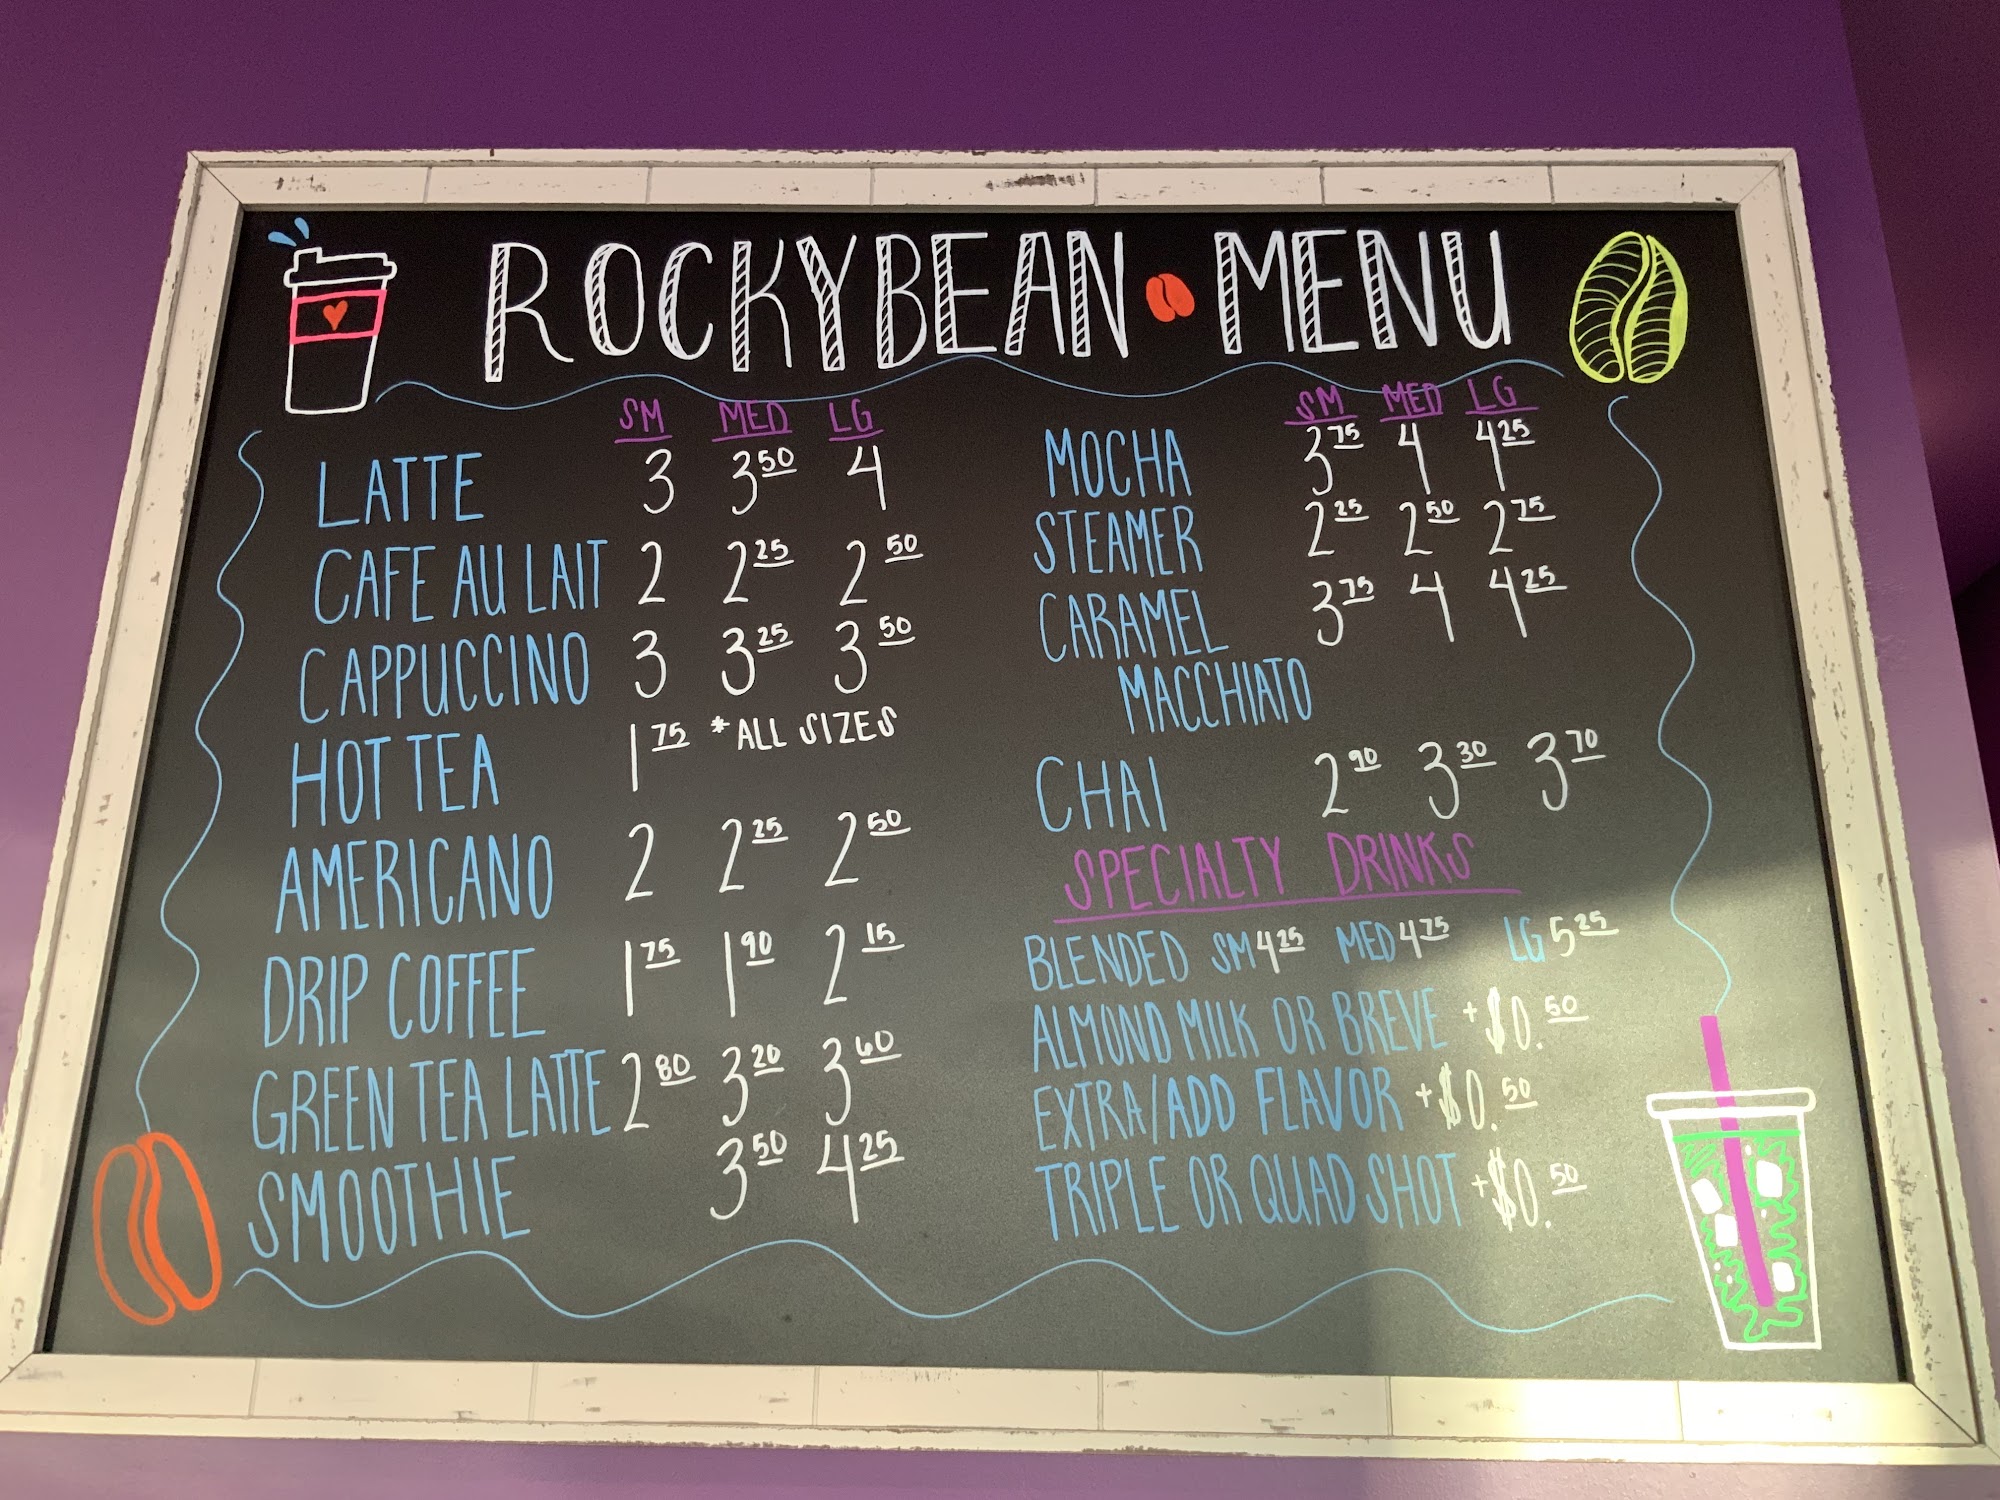 ROCKYBEAN MENU
SM MED LG
LATTE 3 3.50 4
CAFE AU LAIT 2 2.25 2.50
CAPPUCCINO 3 3.25 3.50
HOT TEA 1.75 *ALL SIZES
AMERICANO 2 2.25 2.50
DRIP COFFEE 1.75 1.90 2.15
GREEN TEA LATTE 2.80 3.20 3.60
SMOOTHIE 3.50 4.25
SM MED LG
MOCHA 3.75 4 4.25
STEAMER 2.25 2.50 2.75
CARAMEL 3.75 4 4.25
MACCHIATO
CHAI 2.90 3.30 3.70
SPECIALTY DRINKS
BLENDED SM 4.25 MED 4.75 LG 5.25
ALMOND MILK OR BREVE +$0.50
EXTRA/ADD FLAVOR +$0.50
TRIPLE OR QUAD SHOT +$0.50